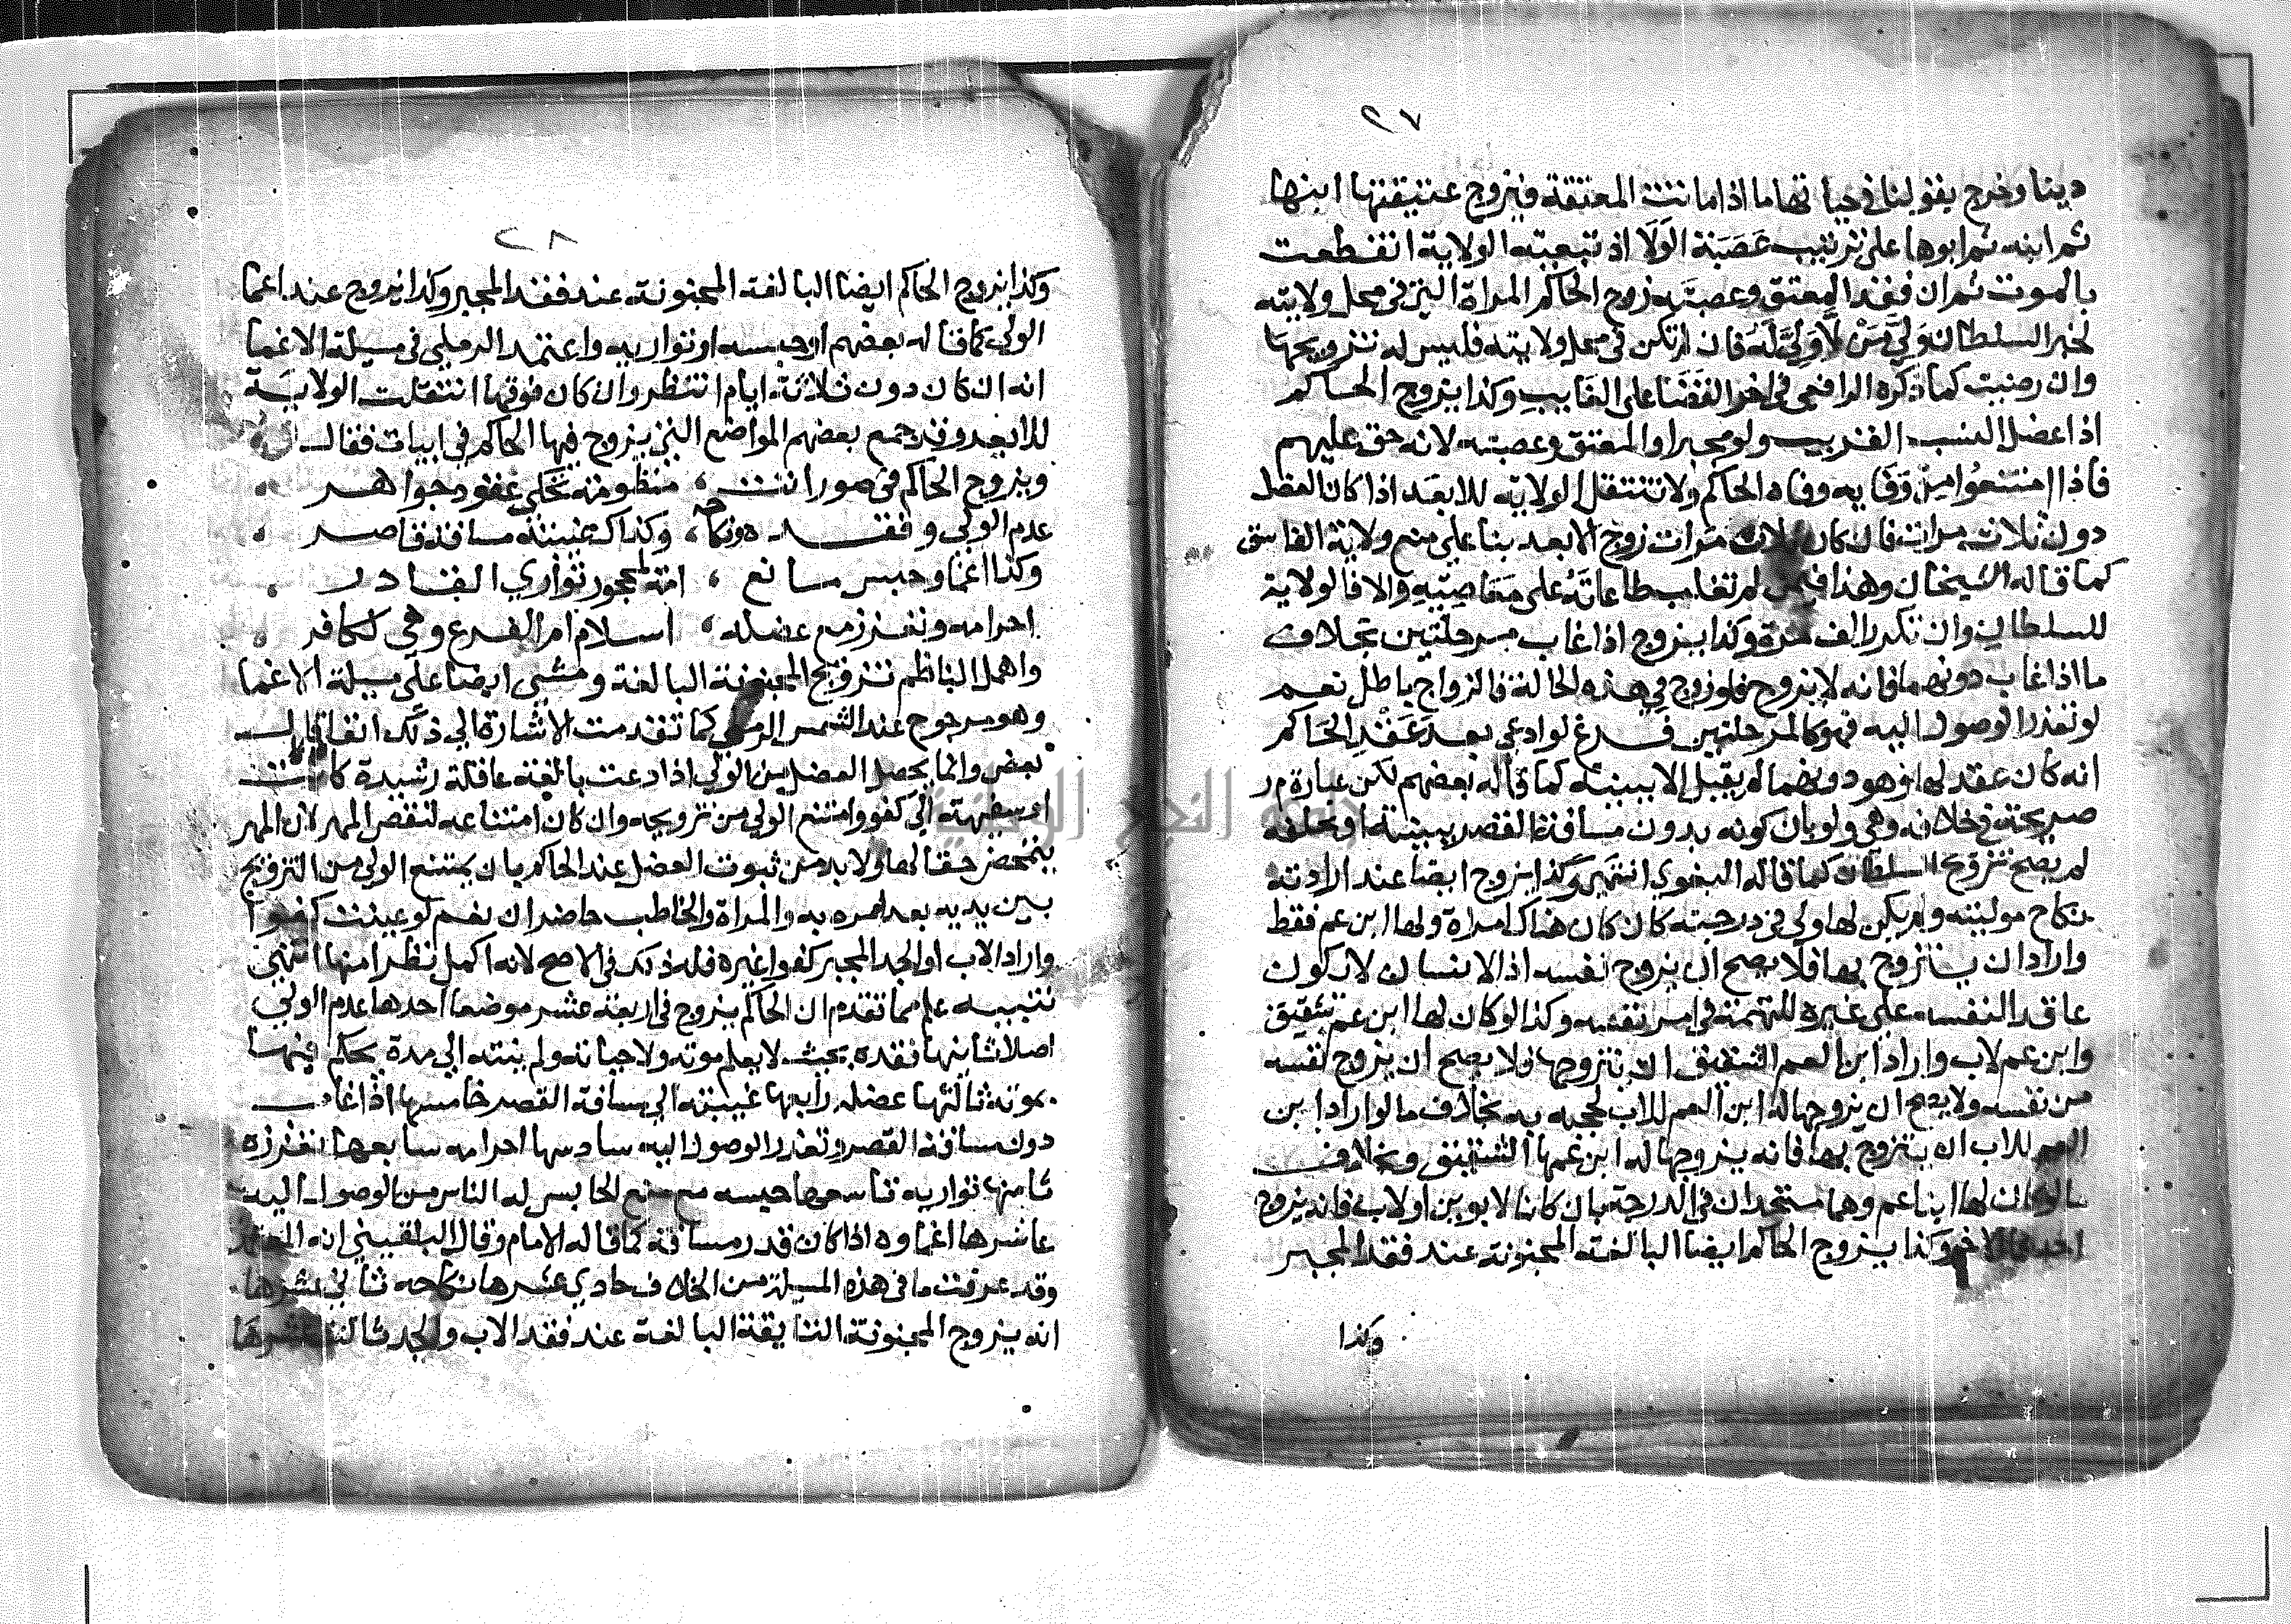 ٢٧
دينا وخرج بقولنا في حياتها ما اذا ماتت المعتقة فيزوج عتيقتها ابنها
ثم ابنه ثم ابوها على ترتيب عَصَبَة الولَا اذ تبعية الولاية انقطعت
بالموت ثم ان فقد المعتق وعصبته زوج الحاكم المراة التي في محل ولايته
لخبر السلطان وَلِيّ مَنْ لَا وَلِيَّ لَهُ فان لم تكن في محل ولايته فليس له تزويجها
وان رضيت كما ذكره الرافعي في اخر القَضَا على الغايب وكذا يزوج الحاكم
اذا عضل النسب القريب ولو مجبرا او المعتق وعصبته لانه حق عليهم
فاذا امتنعُوا مِنْ وَفَايه وفاه الحاكم ولا تنتقل الولاية للابعَد اذا كان العضل
دون ثلاث مرات فان كان ثلاث مَرات زوج الابعد بنا على منع ولاية الفاسق
كما قاله الشيخان وهذا فيمن لم تغلب طاعاتَهُ على مَعَاصِيْهِ والا فالولاية
للسلطان وان تكرر الف مرة وكذا يزوج اذا غاب مرحلتين بخلاف
ما اذا غاب دونهما فانه لا يزوج فلو زوج في هذه الحالة فالزواج باطل نعم
لو تعذر الوصول اليه فهو كالمرحلتين فرع لو ادعى بعد عَقْدِ الحَاكم
انه كان عقد لها وهو دونهما لم يقبل الا ببينة كما قاله بعضهم لكن عبارة م ر
صريحة في خلافه وهي ولو بان كونه بدون مسافة القصر ببينة او بحلفه
لم يصح تزوج السلطان كما قاله البغوي انتهي وكذا يزوج ايضا عند ارادته
نكاح موليته ولم يكن لها ولي في درجته كان كان هناك امراة ولها ابن عم فقط
واراد ان يتزوج بها فلا يصح ان يزوج نفسه اذ الانسان لا يكون
عاقد النفسه على غيره للتهمة في امر نفسه وكذا لو كان لها ابن عم شقيق
وابن عم لاب واراد ابن العم الشقيق ان يتزوجها فلا يصح ان يزوج نفسه
من نفسه ولا يصح ان يزوجها له ابن العم للاب لحجبه به بخلاف ما لو اراد ابن
العم للاب ان يتزوج بها فانه يزوجها له ابن عمها الشقيق وبخلاف
ما لو كان لها ابنا عم وهما مستحدان في الدرجة بان كانا لابوين او لاب فانه يزوج
احدهما الاخر وكذا يزوج الحاكم ايضا البالغة المجنونة عند فقد المجبر
وكذا
٢٨
وكذا يزوج الحاكم ايضا البالغة المجنونة عند فقد المجبر وكذا يزوج عند اغما
الولي كما قاله بعضهم او حبسه او تواريه واعتمد الرملي في مسيلة الاغما
انه ان كان دون ثلاثة ايام انتظر وان كان فوقها انتقلت الولايَة
للابعد وقد جمع بعضهم المواضع التي يزوج فيها الحاكم في ابيات فقال
ويزوج الحاكم في صور اتت ، منظومة تحكى عقود جواهر
عدم الولي وفقد دونكاحه ، وكذاك غيبته مسافة قاصر
وكذا اغما وحبس مانع ، امة لمحجور تواري القادر
احرامه وتعزز مع عضله ، اسلام ام الفرع وهي لكافر
واهمل الناظم تزويج المجنونة البالغة ومشى ايضا على مسيلة الاغما
وهو مرجوح عند الشمس الرملي كما تقدمت الاشارة الي ذلك انفا قال
بعض وانما يحصل العضل من الولي اذا دعت بالغة عاقلة رشيدة كانت
او سفيهة الي كفو وامتنع الولي من تزويجه وان كان امتناعه لنقص المهر لان المهر
يتمحض حقا لها ولا بد من ثبوت العضل عند الحاكم بان يمتنع الولي من التزويج
بين يديه بعد امره به والمراة والخاطب حاضران نعم لو عينت كفوا
واراد الاب او الجد المجبر كفوا غيره فله ذلك في الاصح لانه اكمل نظرا منها انتهى
تنبيه علم مما تقدم ان الحاكم يزوج في اربعة عشر موضعا احدها عدم الولي
اصلا ثانيها فقده بحيث لا يعلم موته ولا حياته ولم ينته الي مدة يحكم فيها
بموته ثالثها عضله رابعها غيبته الي مسافة القصر خامسها اذا غاب
دون مسافة القصر وتعذر الوصول اليه سادسها احرامه سابعها تعززه
ثامنها تواريه تاسعها حبسه مع منع الحابس له الناس من الوصول اليه
عاشرها اغماوه اذا كان قدر مسافة كما قاله الامام وقال البلقيني انه المعتمد
وقد عرفت ما في هذه المسيلة من الخلاف حادي عشرها نكاحه ثاني عشرها
انه يزوج المجنونة التايقة البالغة عند فقد الاب والجد ثالث عشرها